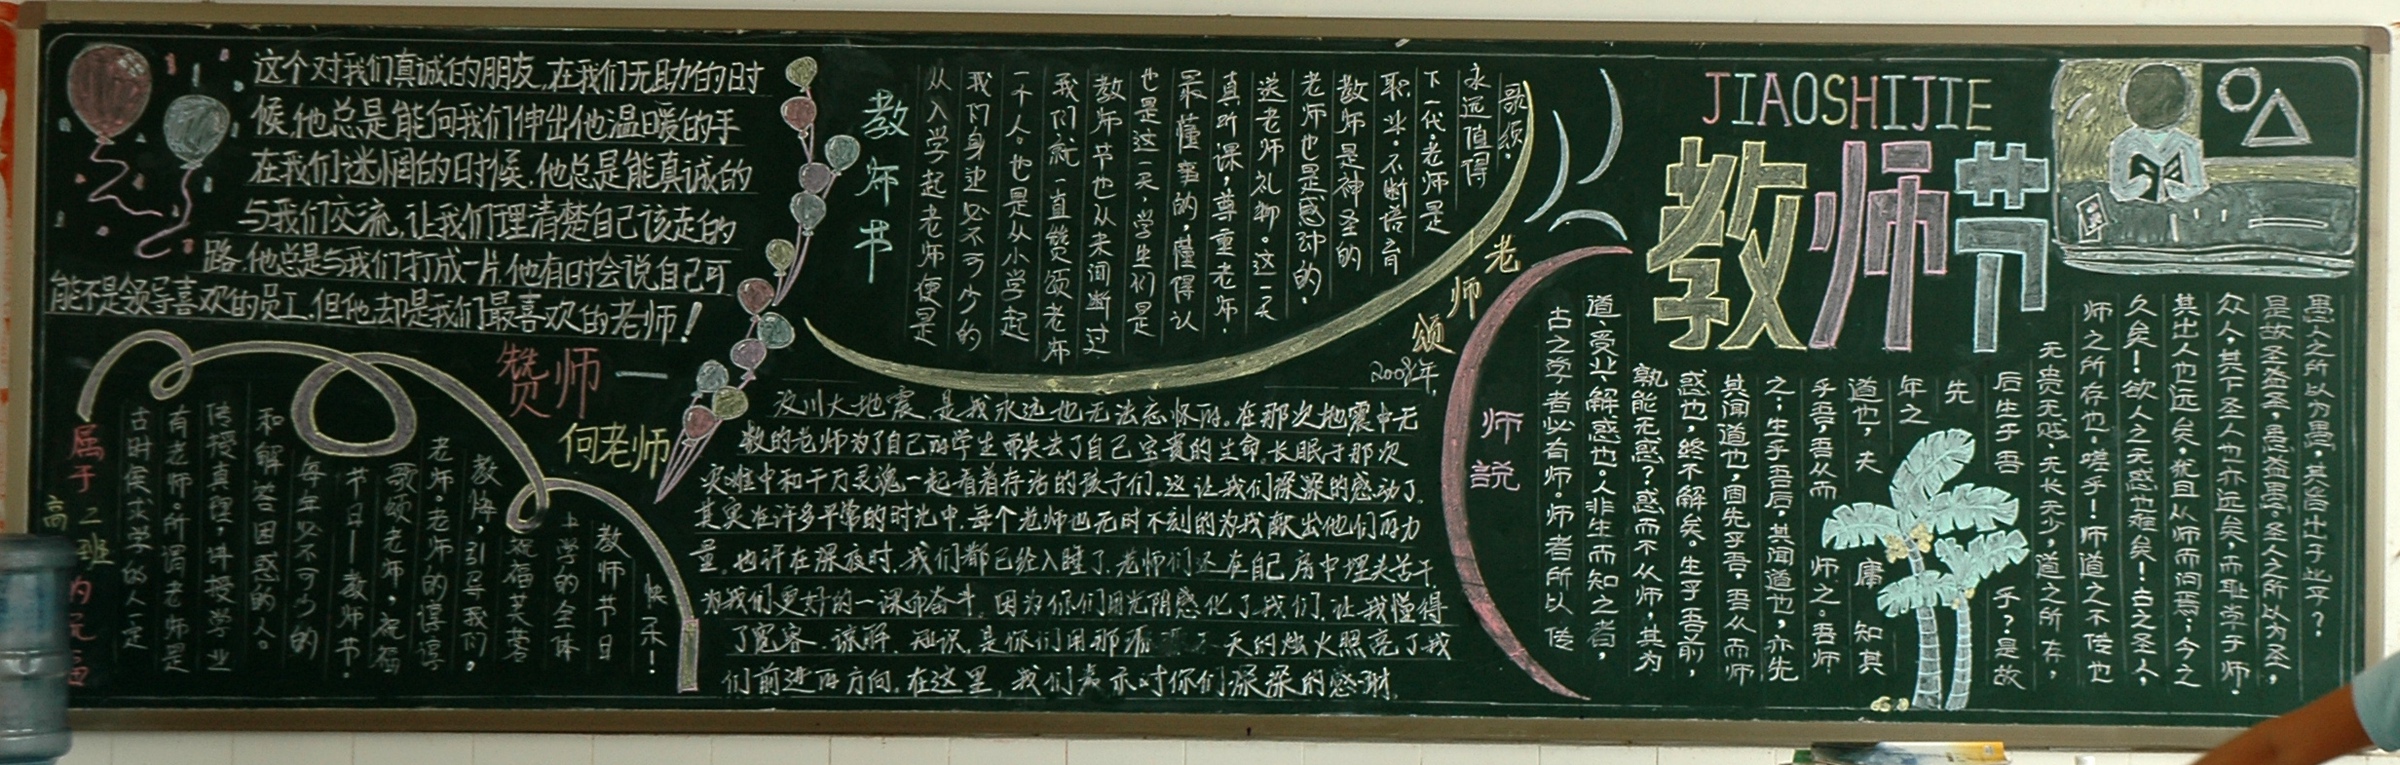 这个对我们真诚的朋友,在我们无助的时
候,他总是能向我们伸出他温暖的手
在我们迷惘的时候,他总是能真诚的
与我们交流,让我们理清楚自己该走的
路,他总是与我们打成一片,他有时会说自己可
能不是领导喜欢的员工,但他却是我们最喜欢的老师!
赞师一
何老师
属于高二班的祝福
古时候求学的人定
有老师。所谓老师是
传授真理,讲授学业
和解答困惑的人。
每年必不可少的
节日—教师节.
歌颂老师,祝福
老师。老师的谆谆
教悔,引导我们。
祝福芙蓉
上学的全体
教师节日
快乐!
教师节
从入学起老师便是
我们身边必不可少的
一个人。也是从小学起
我们就一直赞颂老师
教师节也从未间断过
也是这一天,学生们是
最懂事的,懂得认
真听课,尊重老师.
送老师礼物。这一天
老师也是感动的.
教师是神圣的
职业。不断培育
下一代。老师是
永远值得
歌颂.
老师颂
2008年,
汶川大地震,是我永远也无法忘怀的。在那次地震中无
数的老师为了自己的学生而失去了自己宝贵的生命,长眠于那次
灾难中和千万灵魂一起看着存活的孩子们。这让我们深深的感动了。
其实在许多平常的时光中,每个老师也无时不刻的为我献出他们的力
量。也许在深夜时,我们都已经入睡了,老师们还在自己房中埋头苦干,
为我们更好的一课而奋斗。因为你们用光阴感化了我们,让我懂得
了宽容、谅解、知识,是你们用那 天的烛火照亮了我
们前进的方向。在这里,我们表示对你们深深的感谢。
JIAOSHIJIE
教师节
师説
古之学者必有师。师者所以传
道,受业,解惑也。人非生而知之者,
孰能无惑?惑而不从师,其为
惑也,终不解矣。生乎吾前,
其闻道也,固先乎吾,吾从而师
之;生乎吾后,其闻道也,亦先
乎吾,吾从而 师之。吾师
道也,夫 庸 知其
年之
先
后生于吾 乎?是故
无贵无贱,无长无少,道之所存,
师之所存也。嗟乎!师道之不传也
久矣!欲人之无惑也难矣!古之圣人,
其出人也远矣,犹且从师而问焉;今之
众人,其下圣人也亦远矣,而耻学于师。
是故圣益圣,愚益愚。圣人之所以为圣,
愚人之所以为愚,其皆出于此乎?